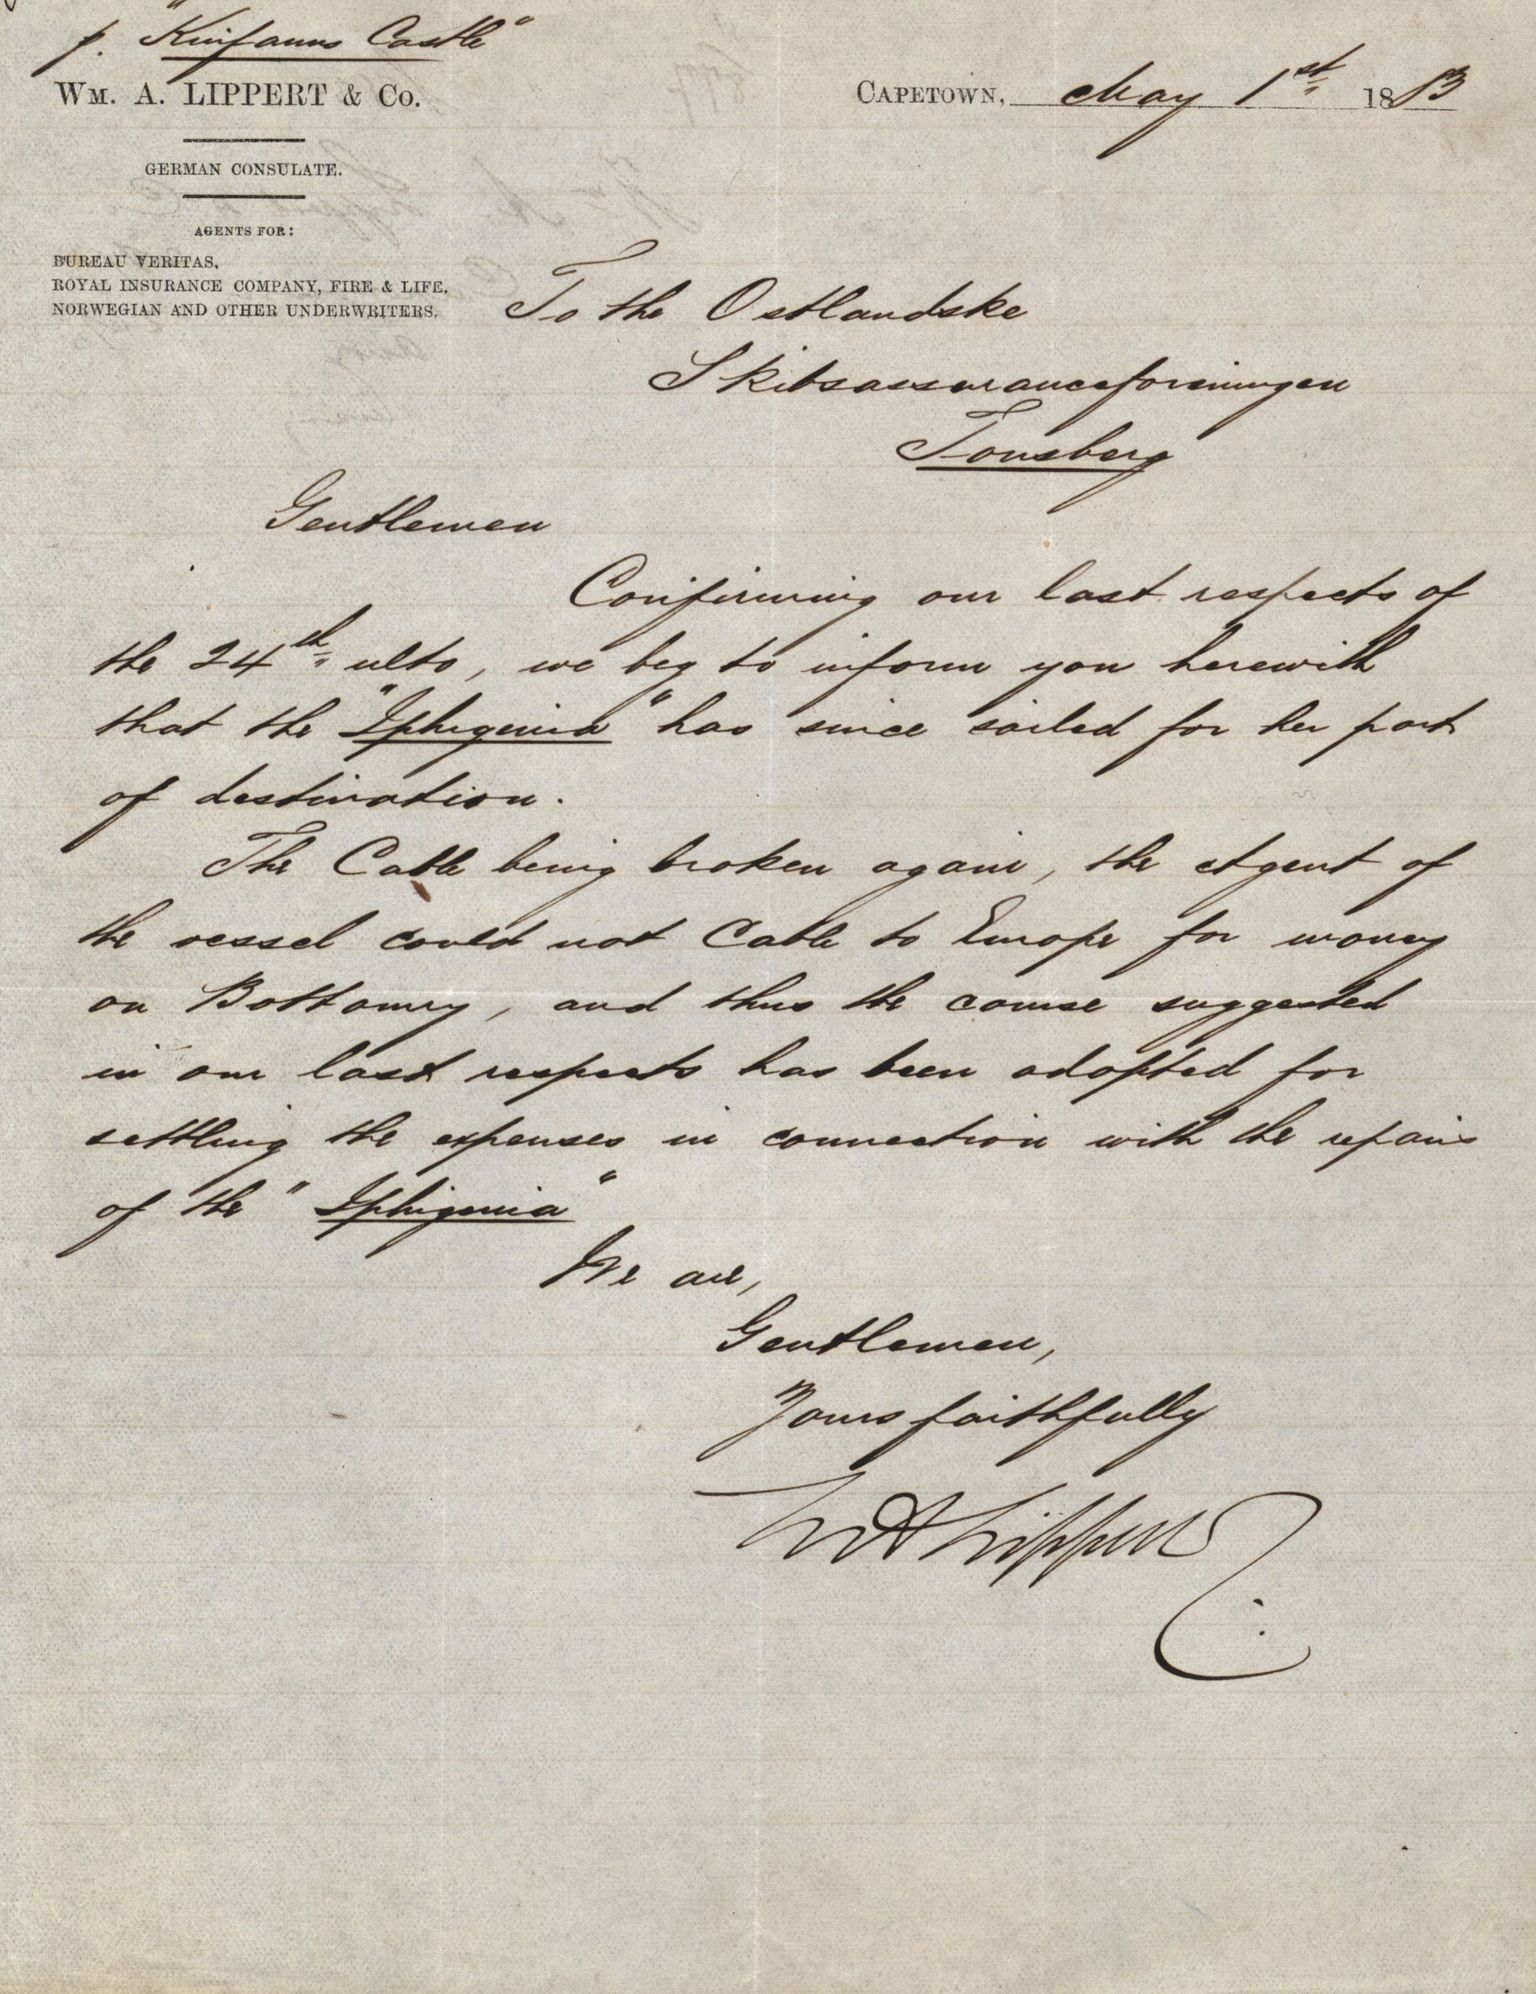 p. "Kinfauns Castle"
WM. A. LIPPERT & CO.
CAPETOWN, May 1st 1883
GERMAN CONSULATE.
AGENTS FOR:
BUREAU VERITAS,
ROYAL INSURANCE COMPANY, FIRE & LIFE,
NORWEGIAN AND OTHER UNDERWRITERS.
To the Ostlandske
Skibsassuranceforeningen
Tonsberg
Gentlemen
Confirming our last respects of
the 24th ulto, we beg to inform you herewith
that the "Iphigenia" has since sailed for her port
of destination.
The Cable being broken again, the Agent of
the vessel could not Cable to Europe for money
on Bottomry, and thus the course suggested
in our last respects has been adopted for
settling the expenses in connection with the repairs
of the "Iphigenia"
We are,
Gentlemen,
Yours faithfully
WA Lippert